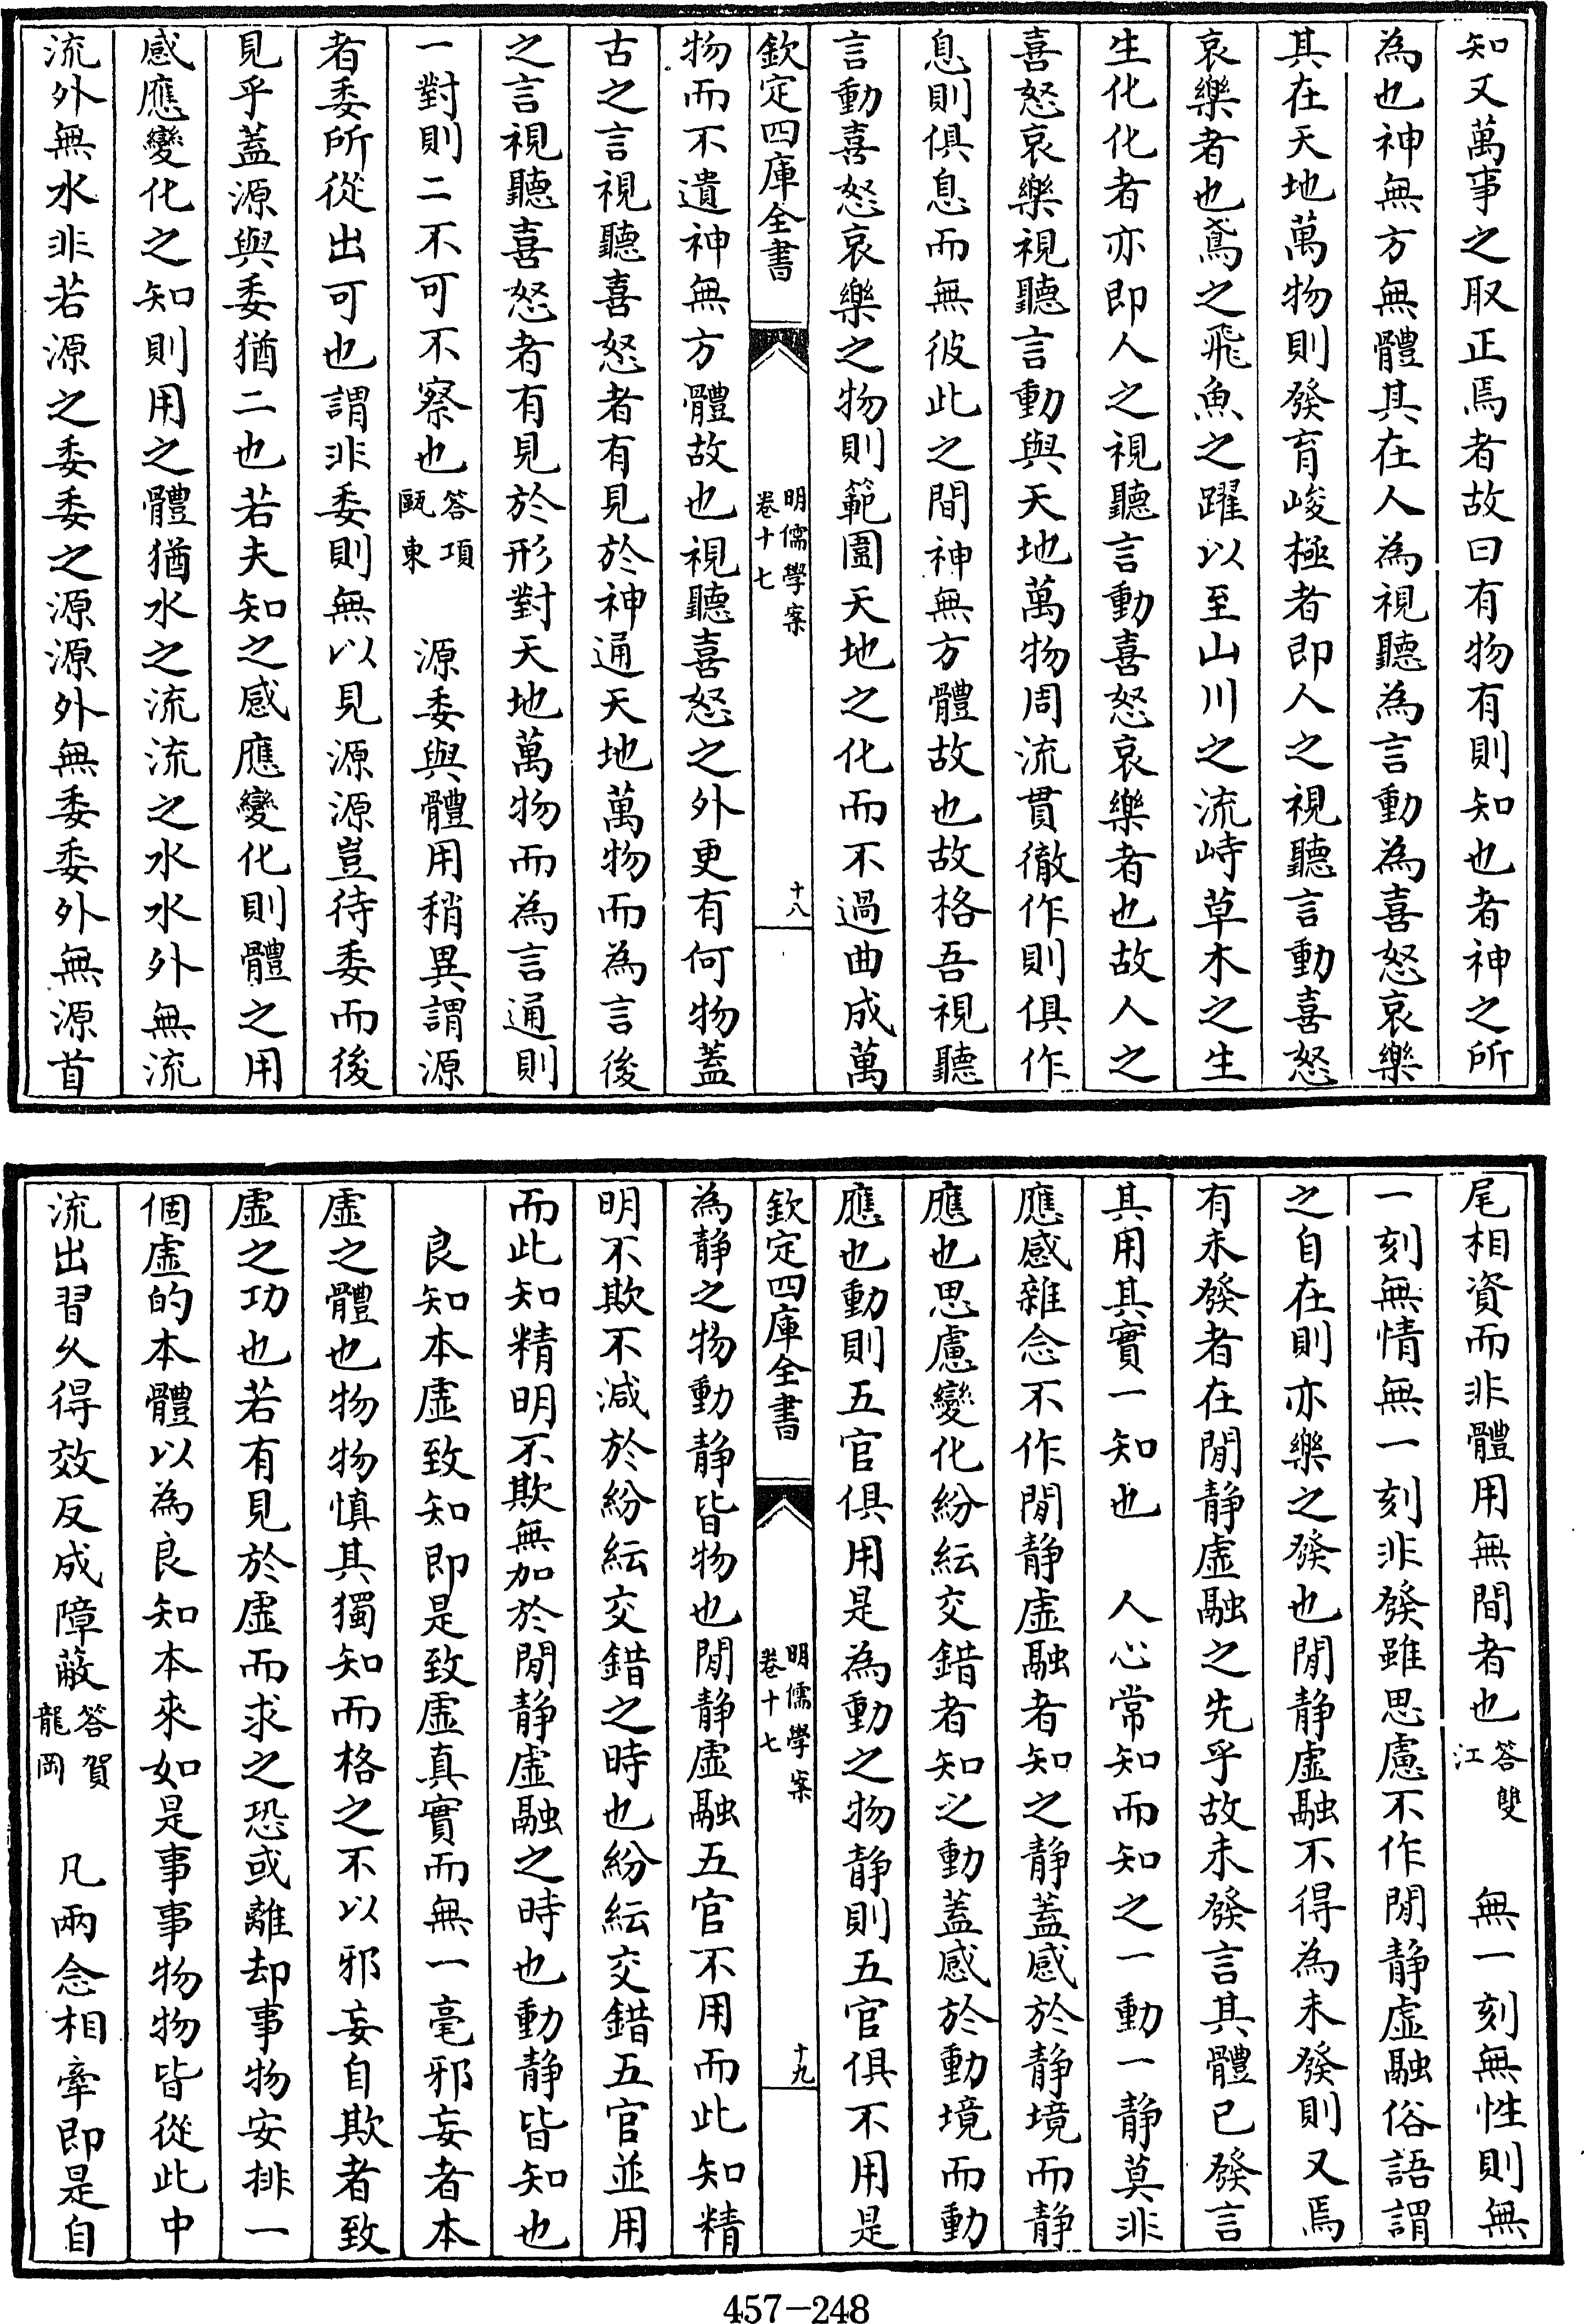 知又萬事之取正焉者故曰有物有則知也者神之所
為也神無方無體其在人為視聽為言動為喜怒哀樂
其在天地萬物則發育峻極者即人之視聽言動喜怒
哀樂者也鳶之飛魚之躍以至山川之流峙草木之生
生化化者亦即人之視聽言動喜怒哀樂者也故人之
喜怒哀樂視聽言動與天地萬物周流貫徹作則俱作
息則俱息而無彼此之間神無方體故也故格吾視聽
言動喜怒哀樂之物則範圍天地之化而不過曲成萬
欽定四庫全書
明儒學案
卷十七
十八
物而不遺神無方體故也視聽喜怒之外更有何物蓋
古之言視聽喜怒者有見於神通天地萬物而為言後
之言視聽喜怒者有見於形對天地萬物而為言通則
一對則二不可不察也答項甌東　源委與體用稍異謂源
者委所從出可也謂非委則無以見源源豈待委而後
見乎蓋源與委猶二也若夫知之感應變化則體之用
感應變化之知則用之體猶水之流流之水水外無流
流外無水非若源之委委之源源外無委委外無源首
尾相資而非體用無間者也答雙江　無一刻無性則無
一刻無情無一刻非發雖思慮不作閒静虛融俗語謂
之自在則亦樂之發也閒静虛融不得為未發則又焉
有未發者在閒静虛融之先乎故未發言其體已發言
其用其實一知也　人心常知而知之一動一静莫非
應感雜念不作閒静虛融者知之静蓋感於静境而静
應也思慮變化紛紜交錯者知之動蓋感於動境而動
應也動則五官俱用是為動之物静則五官俱不用是
欽定四庫全書
明儒學案
卷十七
十九
為静之物動静皆物也閒静虛融五官不用而此知精
明不欺不減於紛紜交錯之時也紛紜交錯五官並用
而此知精明不欺無加於閒静虛融之時也動静皆知也
良知本虛致知即是致虛真實而無一毫邪妄者本
虛之體也物物慎其獨知而格之不以邪妄自欺者致
虛之功也若有見於虛而求之恐或離却事物安排一
個虛的本體以為良知本來如是事事物物皆從此中
流出習久得效反成障蔽答賀龍岡　凡兩念相牽即是自
457—248